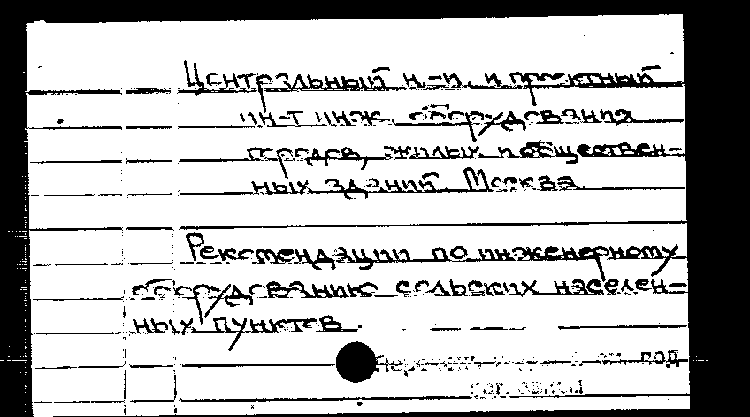 Центральный н.-и. и проектный
ин-т инж. оборудования
городов, жилых и обществен-
ных зданий. Москва.
Рекомендации по инженерному
оборудованию сельских населен-
ных пунктов.
см. под